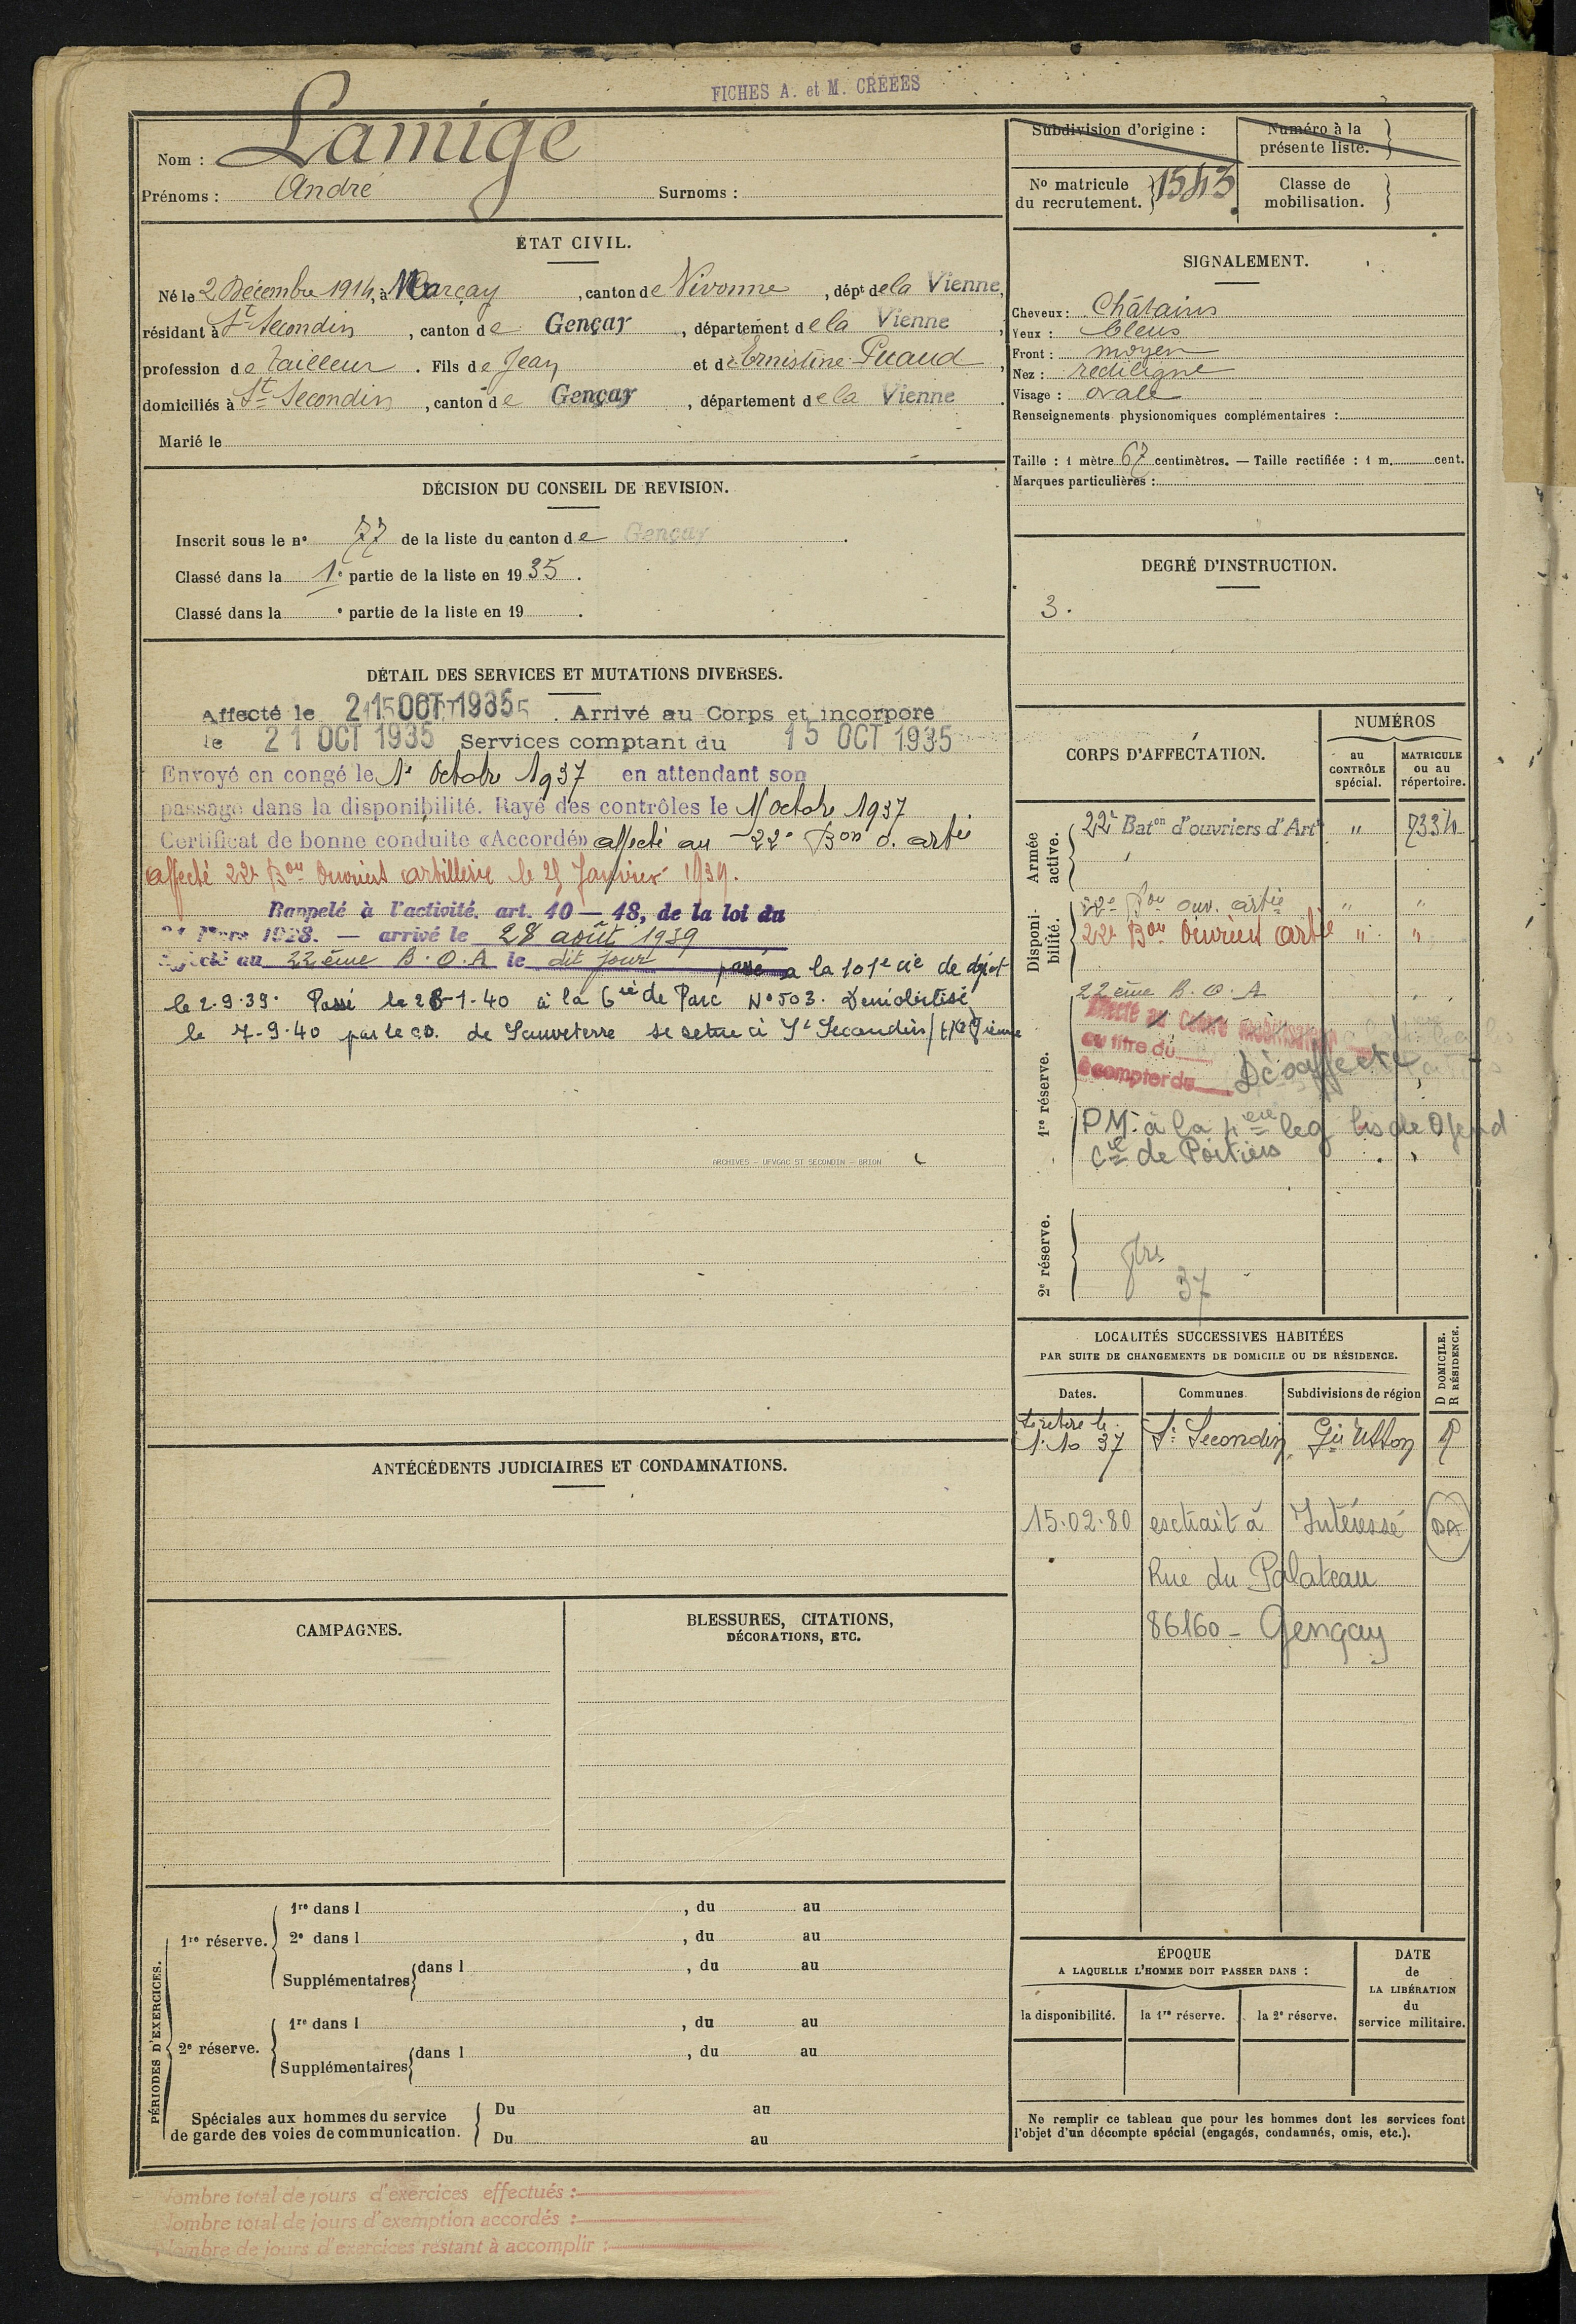 FICHES A. et M. CRÉÉES
Nom : Lamige
Prénoms : André Surnoms :
ÉTAT CIVIL.
Né le 2 Décembre 1914, à Marçay, canton de Vivonne, dépt de la Vienne,
résidant à St Secondin, canton de Gençay, département de la Vienne,
profession de tailleur. Fils de Jean et de Ernestine Puaud,
domiciliés à St Secondin, canton de Gençay, département de la Vienne.
Marié le
DÉCISION DU CONSEIL DE REVISION.
Inscrit sous le n° 77 de la liste du canton de Gençay.
Classé dans la 1e partie de la liste en 1935.
Classé dans la e partie de la liste en 19 .
DÉTAIL DES SERVICES ET MUTATIONS DIVERSES.
Affecté le 15 OCT 1935. Arrivé au Corps et incorporé
le 21 OCT 1935 Services comptant du 15 OCT 1935
Envoyé en congé le 1e Octobre 1937 en attendant son
passage dans la disponibilité. Rayé des contrôles le 1 octobre 1937
Certificat de bonne conduite «Accordé» affecté au 22e Bon o. artie
affecté 22e Bon Ouvriers artillerie le 25 Janvier 1939.
Rappelé à l'activité. art. 40 — 48, de la loi du
31 Mars 1928. — arrivé le 28 août 1939
Affecté au 22ème B.O.A le dit jour passé a la 101e cie de dépôt
le 2.9.39. Passé le 28-1-40 à la 6 cie de Parc N° 503. Démobilisé
le 7-9-40 par le CD. de Sauveterre se retire à St Secondin (Vienne
ARCHIVES - UFVGAC ST SECONDIN - BRION
ANTÉCÉDENTS JUDICIAIRES ET CONDAMNATIONS.
CAMPAGNES.
BLESSURES, CITATIONS,
DÉCORATIONS, ETC.
PÉRIODES D'EXERCICES.
1re réserve.
1re dans l , du au
2e dans l , du au
Supplémentaires dans l , du au
2e réserve.
1re dans l , du au
Supplémentaires dans l , du au
Spéciales aux hommes du service
de garde des voies de communication.
Du au
Du au
Nombre total de jours d'exercices effectués :
Nombre total de jours d'exemption accordés :
Nombre de jours d'exercices restant à accomplir :
Subdivision d'origine :
Numéro à la
présente liste.
N° matricule
du recrutement. 1543
Classe de
mobilisation.
SIGNALEMENT.
Cheveux : Châtains
Yeux : bleus
Front : moyen
Nez : rectiligne
Visage : ovale
Renseignements physionomiques complémentaires :
Taille : 1 mètre 67 centimètres. — Taille rectifiée : 1 m. cent.
Marques particulières :
DEGRÉ D'INSTRUCTION.
3.
CORPS D'AFFECTATION.
NUMÉROS
au
CONTRÔLE
spécial.
MATRICULE
ou au
répertoire.
Armée
active.
22e Baton d'ouvriers d'Artie " 7334
Disponi-
bilité.
22e Bon ouv. artie " "
22e Bon Ouvriers artie " "
1re réserve.
22ème B.O.A
Affecté au Centre mobilisation
au titre du
à compter du
Désaffecté
PM. à la 4ème leg bis de Gend
Cie de Poitiers
2e réserve.
37
LOCALITÉS SUCCESSIVES HABITÉES
PAR SUITE DE CHANGEMENTS DE DOMICILE OU DE RÉSIDENCE.
D DOMICILE.
R RÉSIDENCE.
Dates.
Communes
Subdivisions de région
Se retire le
1.10 37 St Secondin
15.02.80 extrait à Intéressé DA
Rue du Palateau
86160 - Gençay
ÉPOQUE
A LAQUELLE L'HOMME DOIT PASSER DANS :
la disponibilité.
la 1re réserve.
la 2e réserve.
DATE
de
LA LIBÉRATION
du
service militaire.
Ne remplir ce tableau que pour les hommes dont les services font
l'objet d'un décompte spécial (engagés, condamnés, omis, etc.).